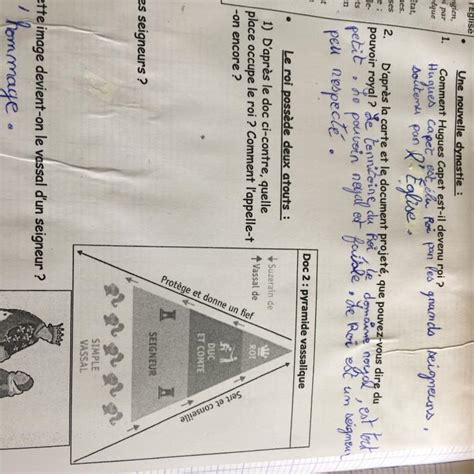 Eglise
• Une nouvelle dynastie :
1. Comment Hugues Capet est-il devenu roi ?
Hugues Capet est élu Roi par les grands seigneurs,
soutenu par l'Eglise.
2. D'après la carte et le document projeté, que pouvez-vous dire du
pouvoir royal ? Le territoire du Roi, le domaine royal, est tout
petit, le pouvoir royal est faible, le Roi est un seigneur
peu respecté.
• Le roi possède deux atouts :
1) D'après le doc ci-contre, quelle
place occupe le roi ? Comment l'appelle-t
-on encore ?
Doc 2 : pyramide vassalique
Suzerain de
Vassal de
Protège et donne un fief
Sert et conseille
ROI
DUC
ET COMTE
SEIGNEUR
SIMPLE
VASSAL
es seigneurs ?
ette image devient-on le vassal d'un seigneur ?
hommage.